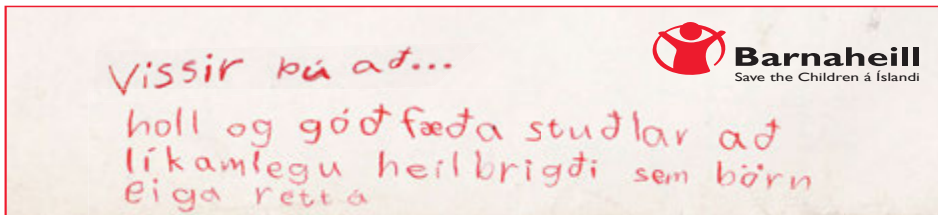 Vissir þú að...
Barnaheill
Save the Children á Íslandi
holl og góð fæða stuðlar að
líkamlegu heilbrigði sem börn
eiga rétt á